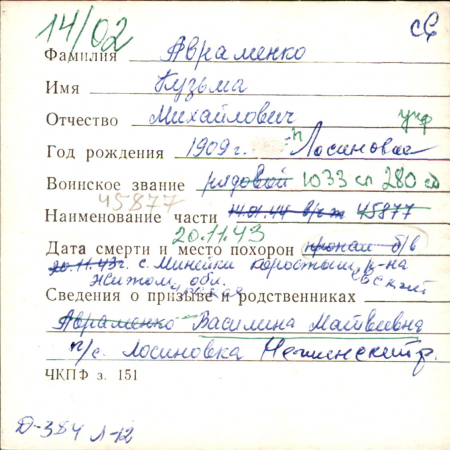 14/02 сб
Фамилия Авраменко
Имя Кузьма
Отчество Михайлович укр
Год рождения 1909 г. п Лосиновое
Воинское звание рядовой 1033 сп 280 сд
45877
Наименование части 14.01.44 45877
20.11.43
Дата смерти и место похорон пропал б/в
20.11.43г. с. Минейки Коростышевский р-на
Житомирская обл.
Сведения о призыве и родственниках
Авраменко Василина Матвеевна
п/с. Лосиновка Неженский р.
ЧКПФ з. 151
Д-384 л-12